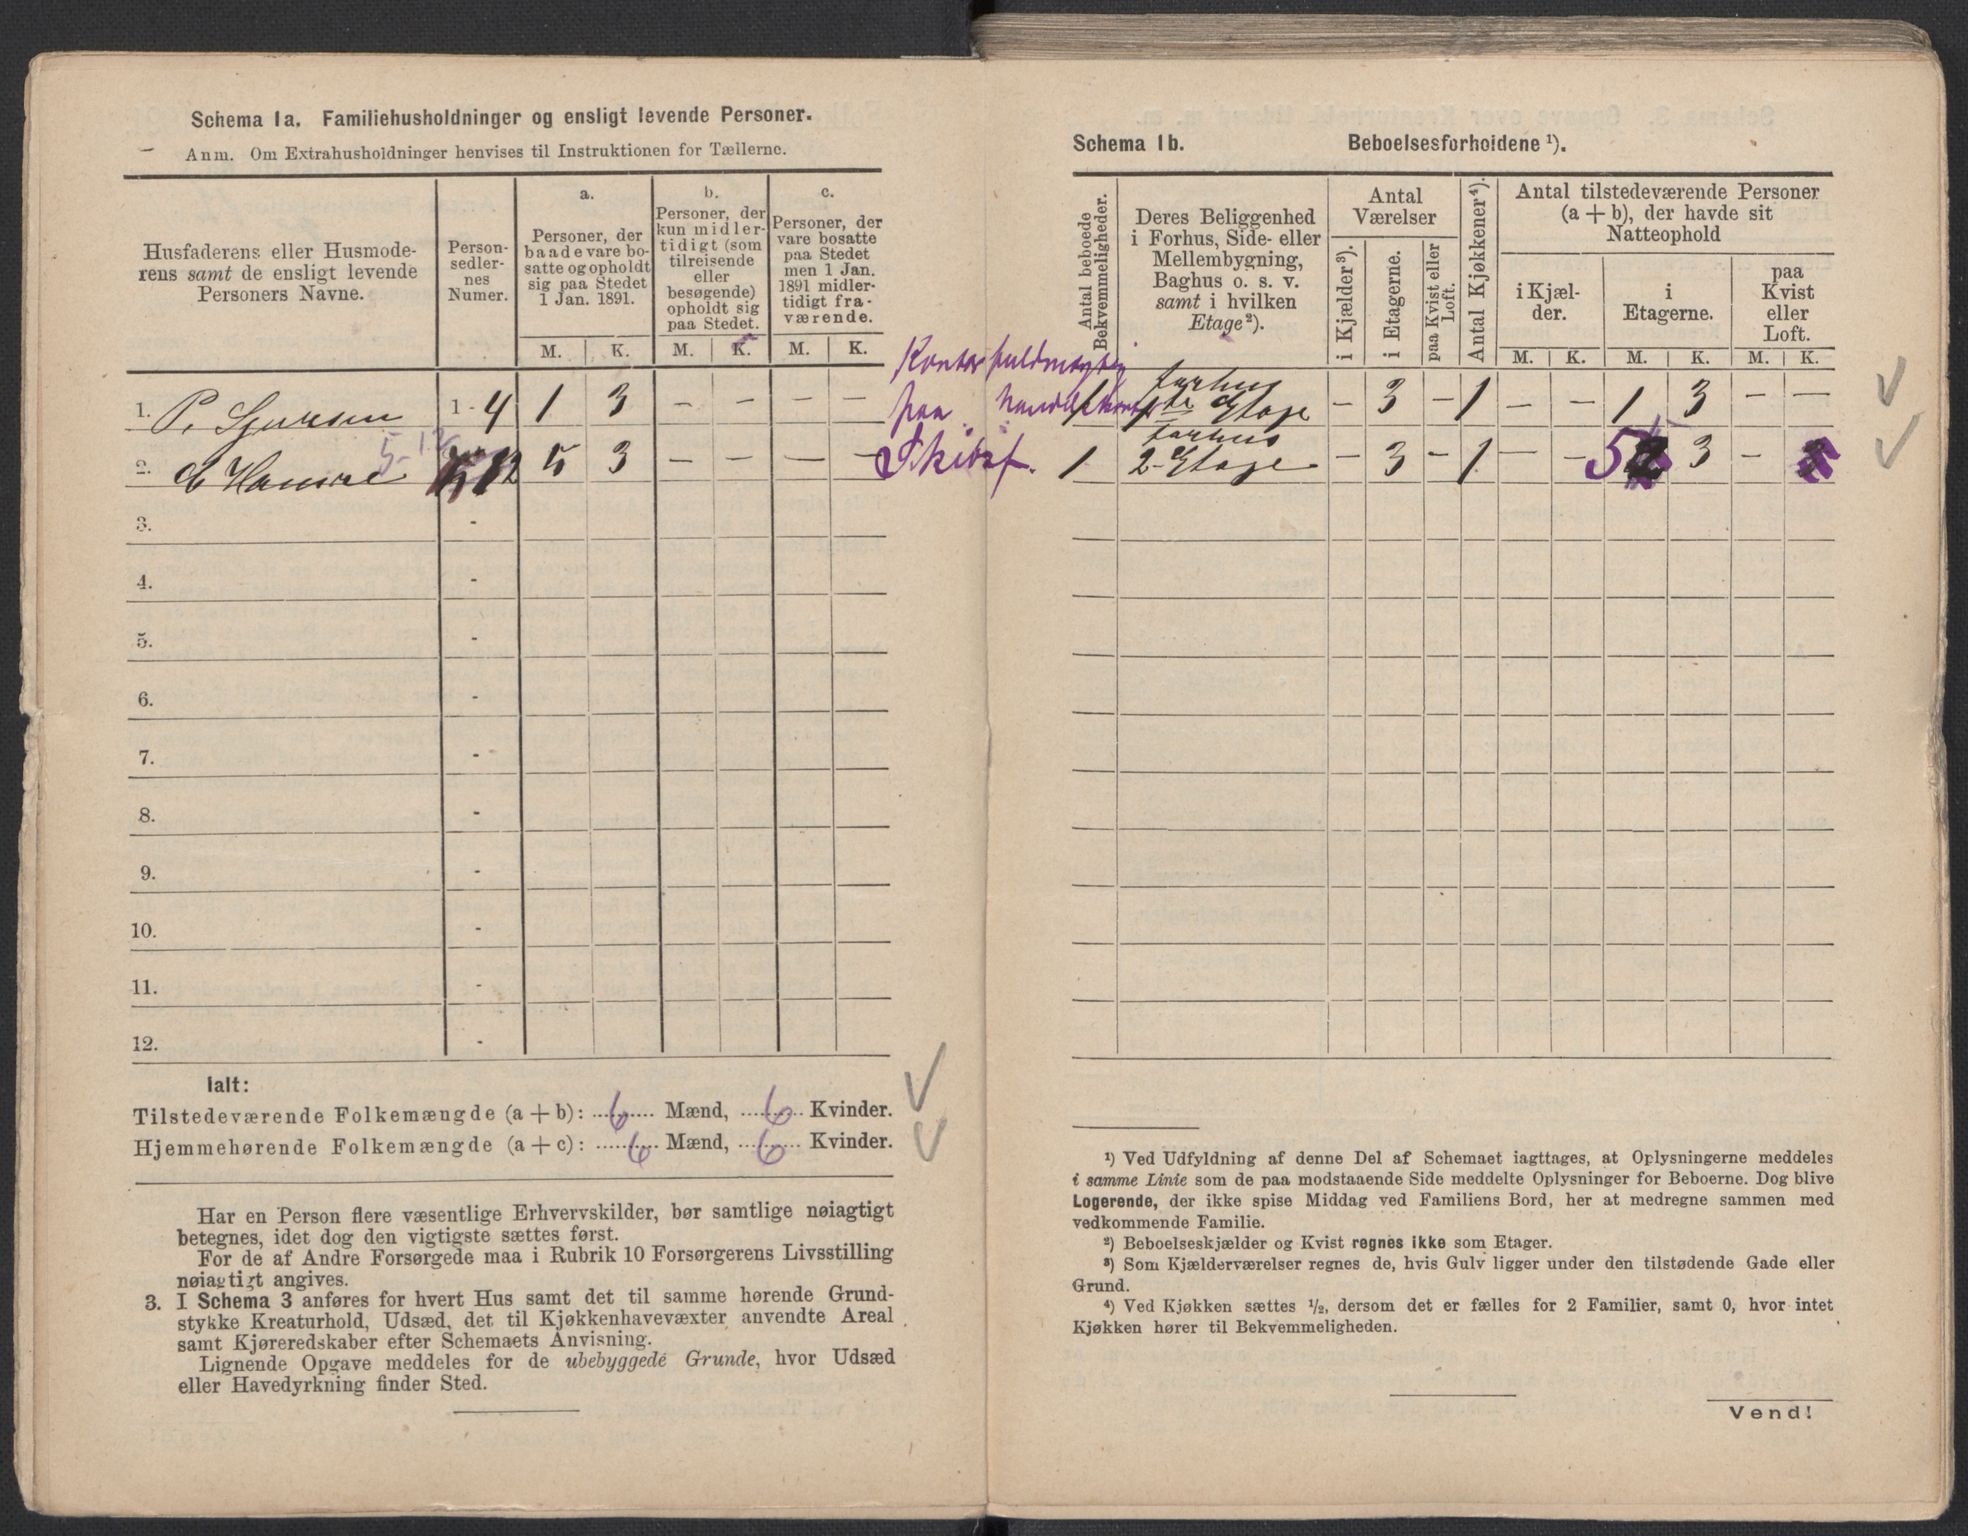 Schema 1a. Familiehusholdninger og ensligt levende Personer.
Anm. Om Extrahusholdninger henvises til Instruktionen for Tællerne.
Husfaderens eller Husmoderens samt de ensligt levende Personers Navne.
Personsedlernes Numer.
a.
Personer, der baade vare bosatte og opholdt sig paa Stedet 1 Jan. 1891.
b.
Personer, der kun midlertidigt (som tilreisende eller besøgende) opholdt sig paa Stedet.
c.
Personer, der vare bosatte paa Stedet men 1 Jan. 1891 midlertidigt fraværende.
M. K. M. K. M. K.
1. P. Sjursen 1 - 4 1 3 – – – –
2. Hansen 5-12 12 5 3 – – – –
3. -
4. -
5. -
6. -
7. -
8. -
9. -
10. -
11. -
12. -
Ialt:
Tilstedeværende Folkemængde (a + b): 6 Mænd, 6 Kvinder.
Hjemmehørende Folkemængde (a + c): 6 Mænd, 6 Kvinder.
Har en Person flere væsentlige Erhvervskilder, bør samtlige nøiagtigt
betegnes, idet dog den vigtigste sættes først.
For de af Andre Forsørgede maa i Rubrik 10 Forsørgerens Livsstilling
nøiagtigt angives.
3. I Schema 3 anføres for hvert Hus samt det til samme hørende Grund-
stykke Kreaturhold, Udsæd, det til Kjøkkenhavevæxter anvendte Areal
samt Kjøreredskaber efter Schemaets Anvisning.
Lignende Opgave meddeles for de ubebyggede Grunde, hvor Udsæd
eller Havedyrkning finder Sted.
Schema 1b. Beboelsesforholdene ¹).
Antal beboede Bekvemmeligheder.
Deres Beliggenhed i Forhus, Side- eller Mellembygning, Baghus o. s. v. samt i hvilken Etage²).
Antal Værelser
i Kjælder³).
i Etagerne.
paa Kvist eller Loft.
Antal Kjøkkener⁴).
Antal tilstedeværende Personer (a + b), der havde sit Natteophold
i Kjælder.
i Etagerne.
paa Kvist eller Loft.
M. K. M. K. M. K.
Kontorfuldmægtig
paa
Skibsf.
1 forhus 1ste Etage – 3 – 1 – – 1 3 – –
1 forhus 2 - Etage – 3 – 1 – – 5 3 –
¹) Ved Udfyldning af denne Del af Schemaet iagttages, at Oplysningerne meddeles
i samme Linie som de paa modstaaende Side meddelte Oplysninger for Beboerne. Dog blive
Logerende, der ikke spise Middag ved Familiens Bord, her at medregne sammen med
vedkommende Familie.
²) Beboelseskjælder og Kvist regnes ikke som Etager.
³) Som Kjælderværelser regnes de, hvis Gulv ligger under den tilstødende Gade eller
Grund.
⁴) Ved Kjøkken sættes ½, dersom det er fælles for 2 Familier, samt 0, hvor intet
Kjøkken hører til Bekvemmeligheden.
Vend!